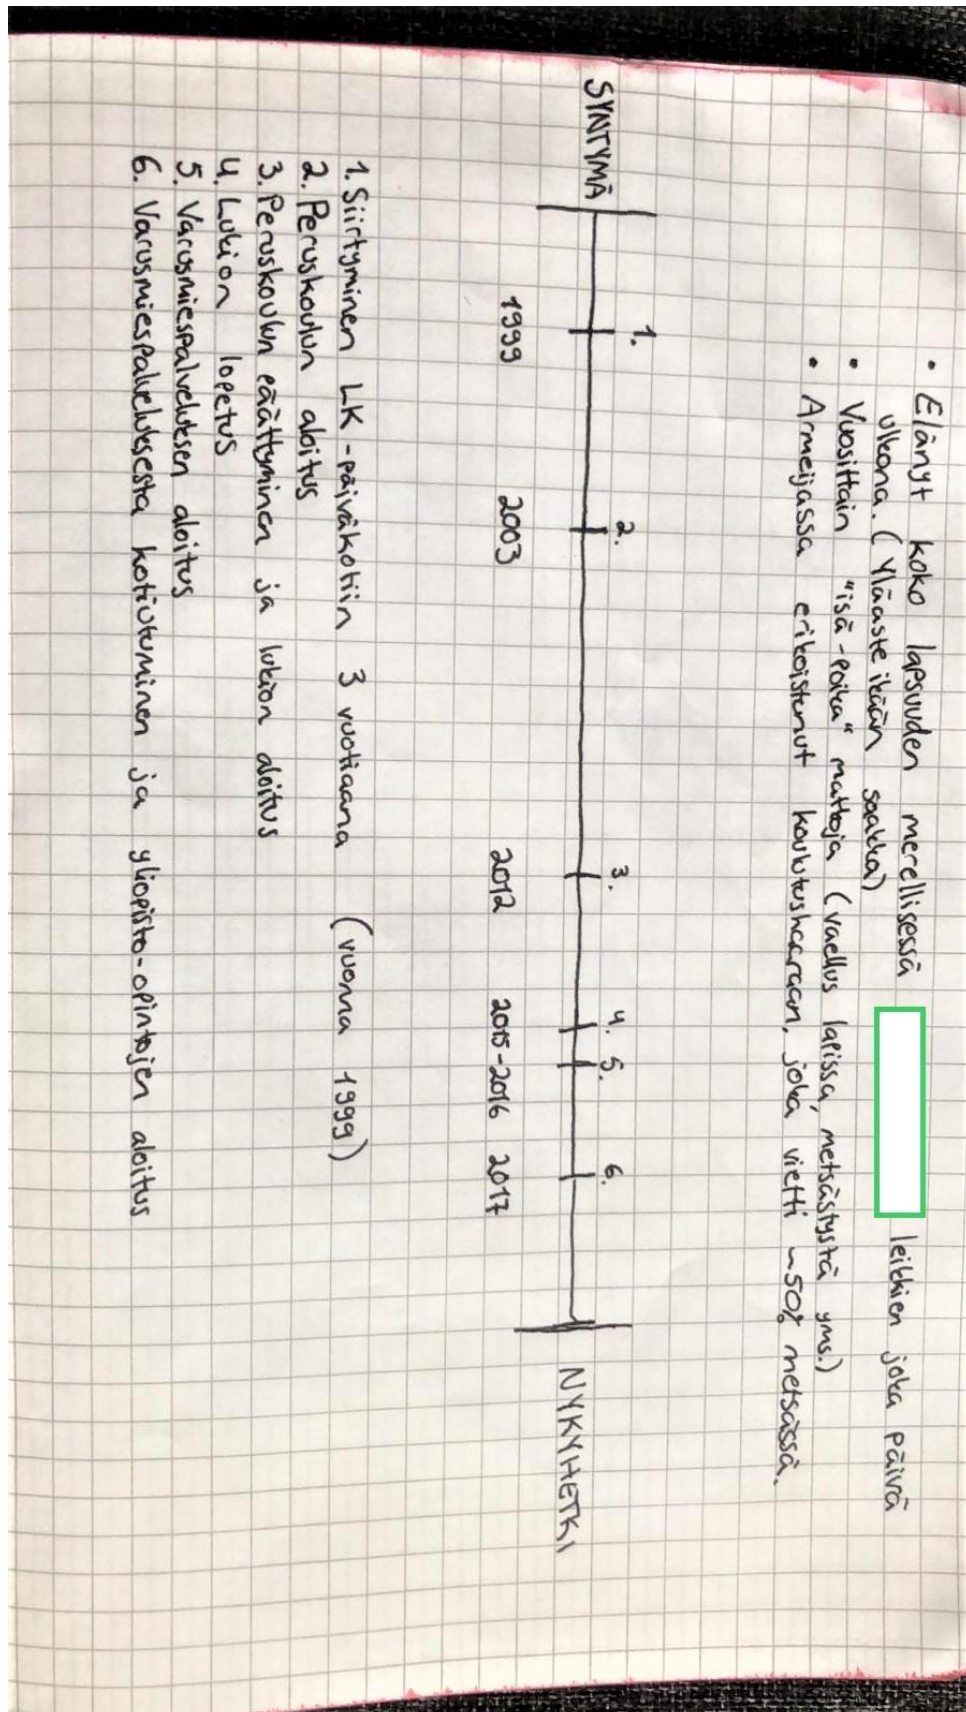 • Elänyt koko lapsuuden merellisessä leikkien joka päivä
ulkona. (Yläaste ikään saakka)
• Vuosittain "isä-poika" matkoja (vaellus lapissa, metsästystä yms.)
• Armeijassa erikoistunut koulutushaaraan, joka vietti ~50% metsässä.
1. 2. 3. 4. 5. 6.
SYNTYMÄ NYKYHETKI
1999 2003 2012 2015-2016 2017
1. Siirtyminen LK-päiväkotiin 3 vuotiaana (vuonna 1999)
2. Peruskoulun aloitus
3. Peruskoulun päättyminen ja lukion aloitus
4. Lukion lopetus
5. Varusmiespalveluksen aloitus
6. Varusmiespalveluksesta kotiutuminen ja yliopisto-opintojen aloitus